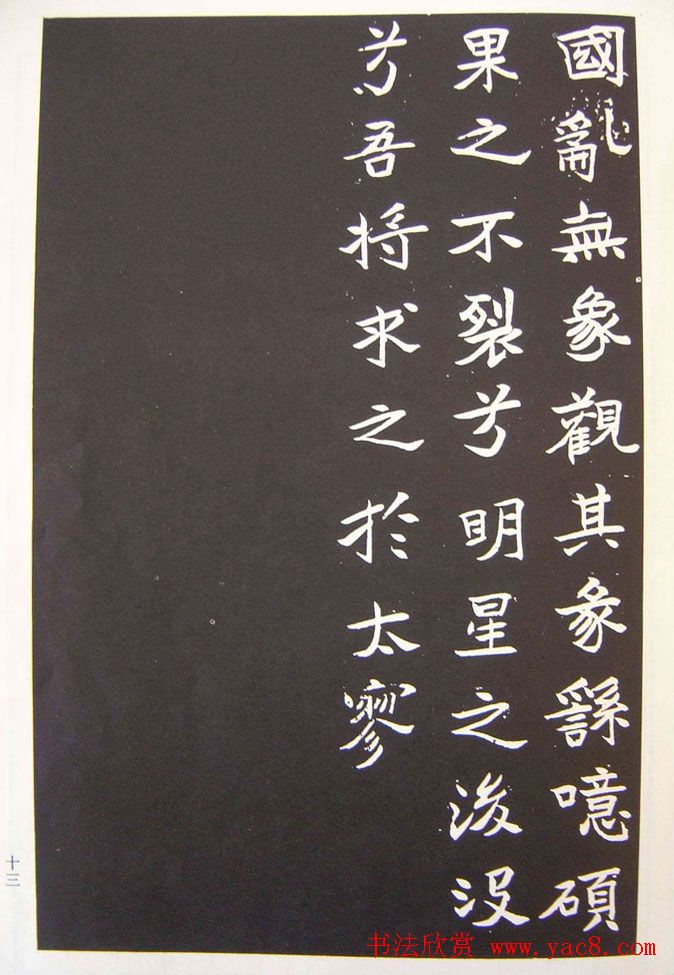 國亂無象觀其彖繇噫碩
果之不裂兮明星之浚没
兮吾将求之於太寥
十三
书法欣赏 www.yac8.com